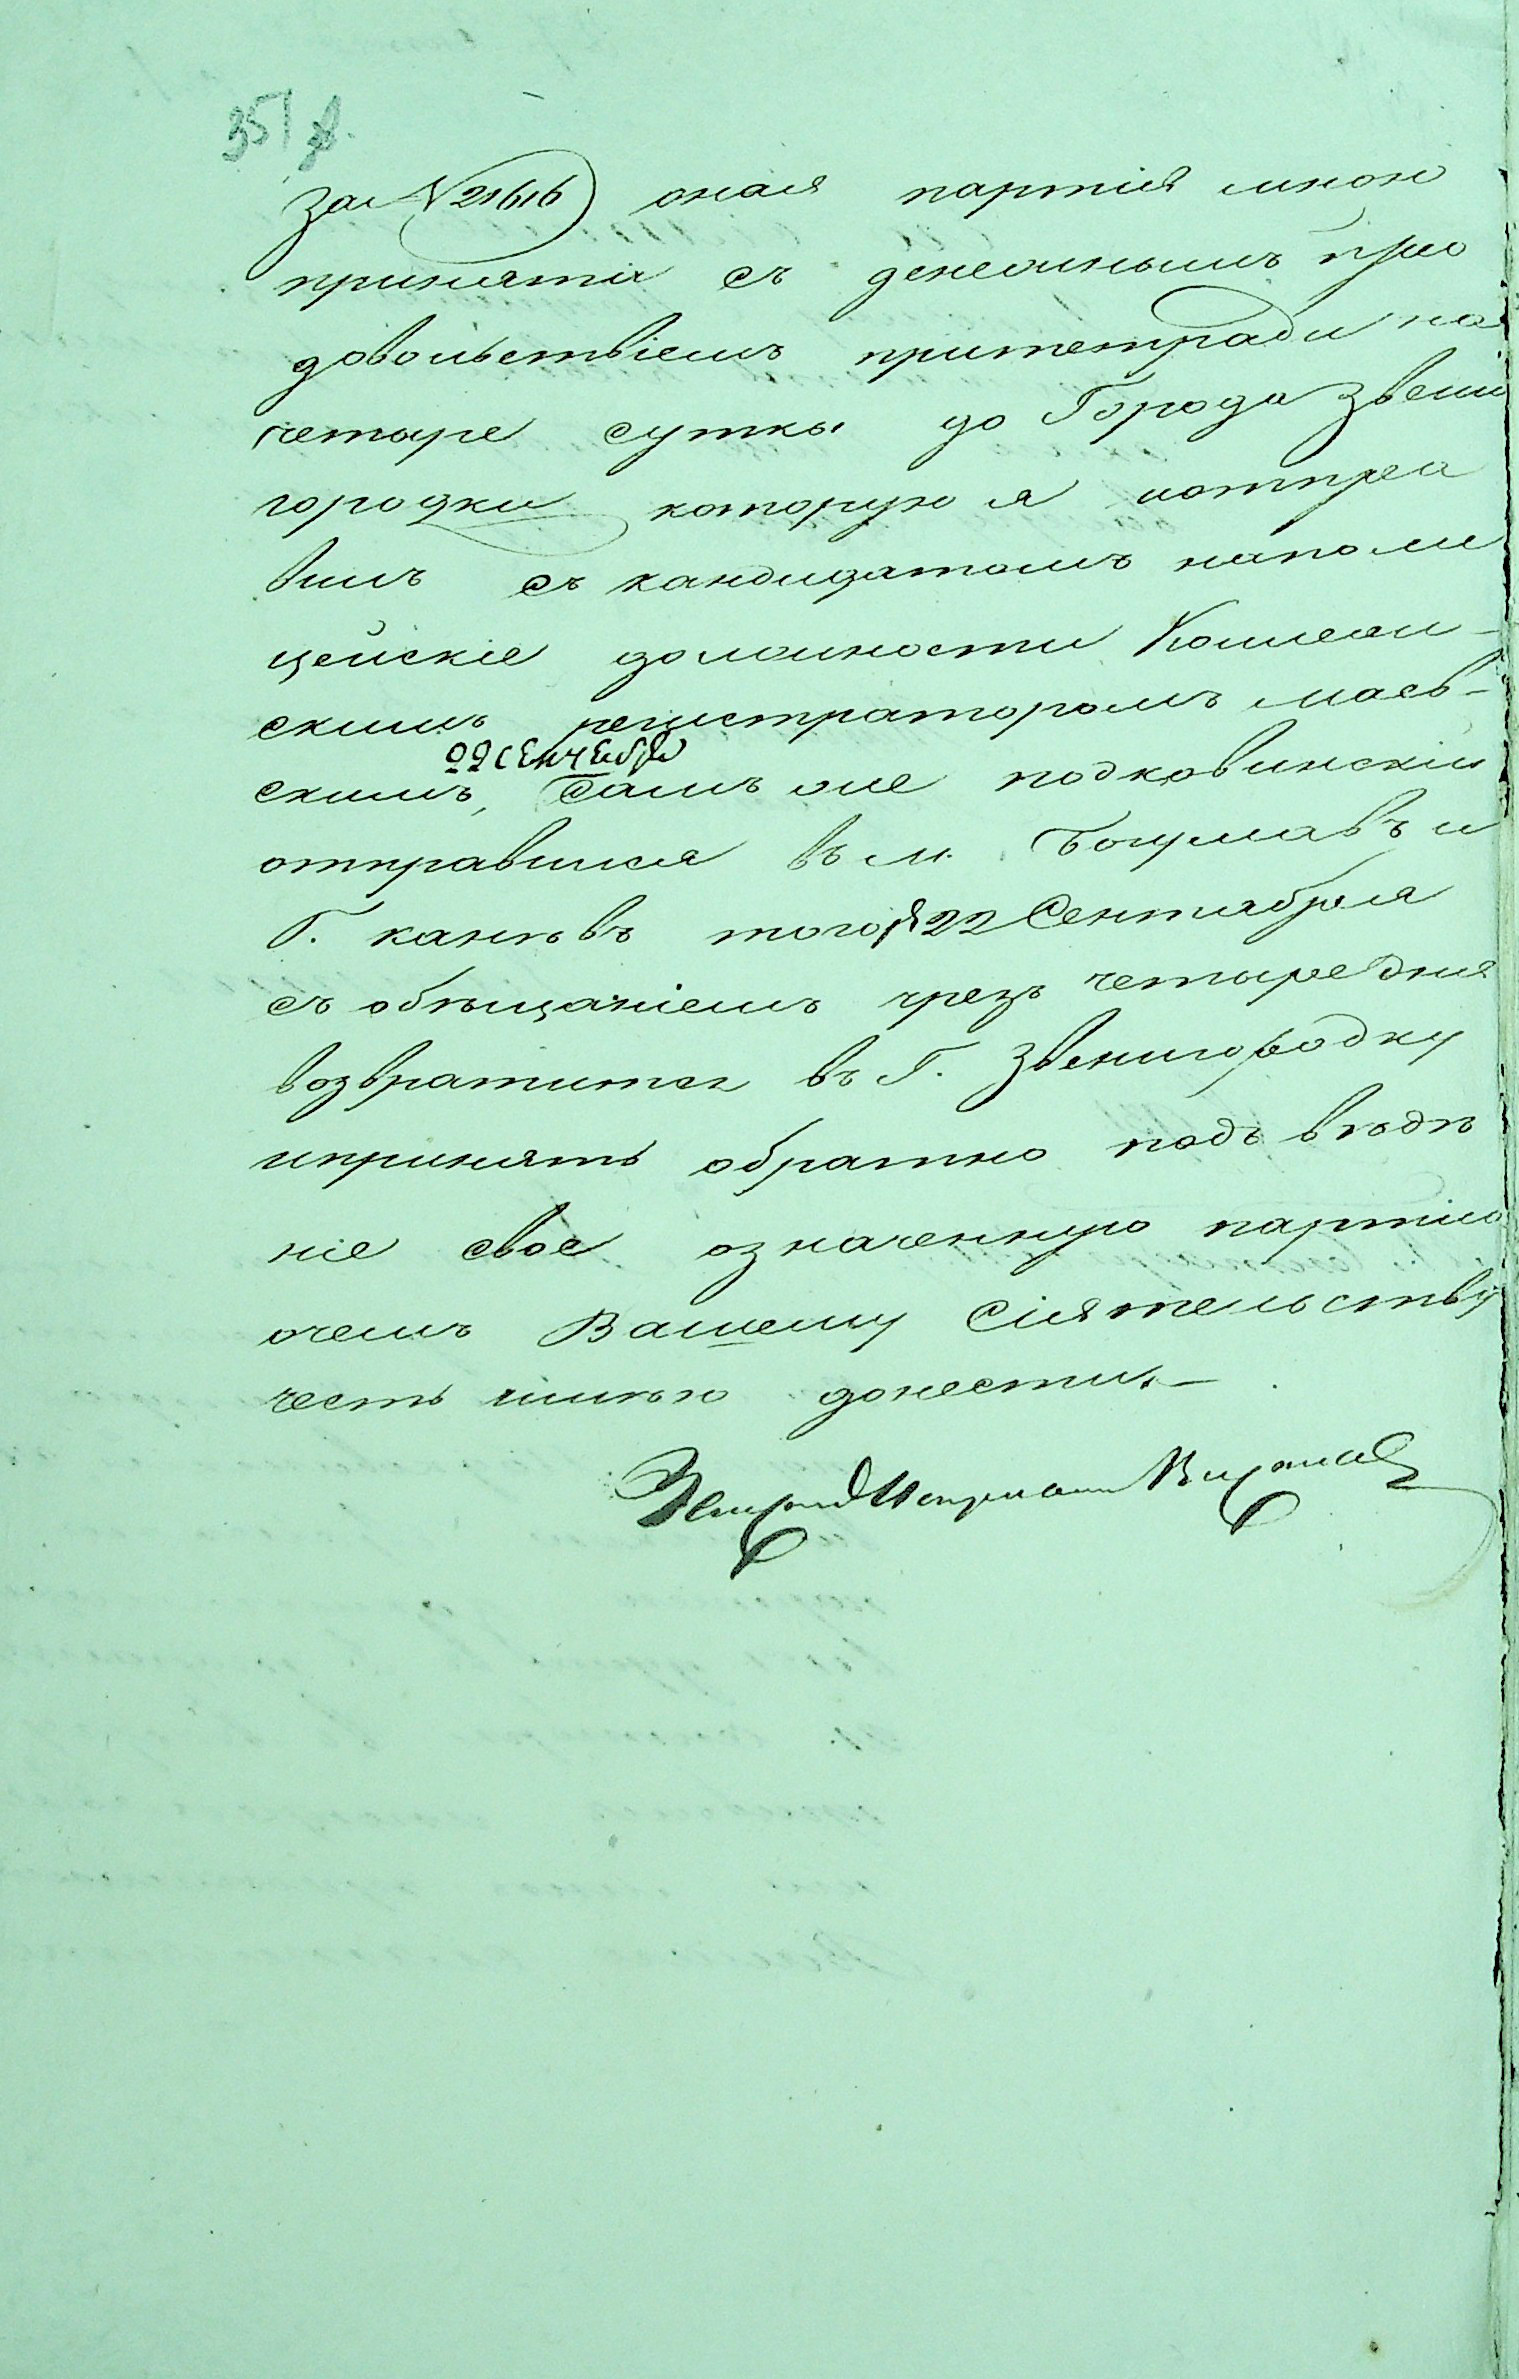 351 об.
за № 21616 оная партія мною
принята съ денежнымъ про
довольствіемъ притетради на
четыре сутки до Города Звени
городки которую я иотпра
вилъ съ кандидатомъ наполи
цейскіе должности Коллеж-
скимъ регистраторомъ Маев-
22 сентебря
скимъ, Самъ же подковинскій
отправился въ м. Богуславъ и
Г. каневъ того 22 Сентября
съ обещаніемъ чрезъ четыре дня
возвратится въ Г. Звенигородку
ипринять обратно подъ вѣдѣ
ніе свое означенную партію
очемъ Вашему Сіятельству
честь имѣю донести.—